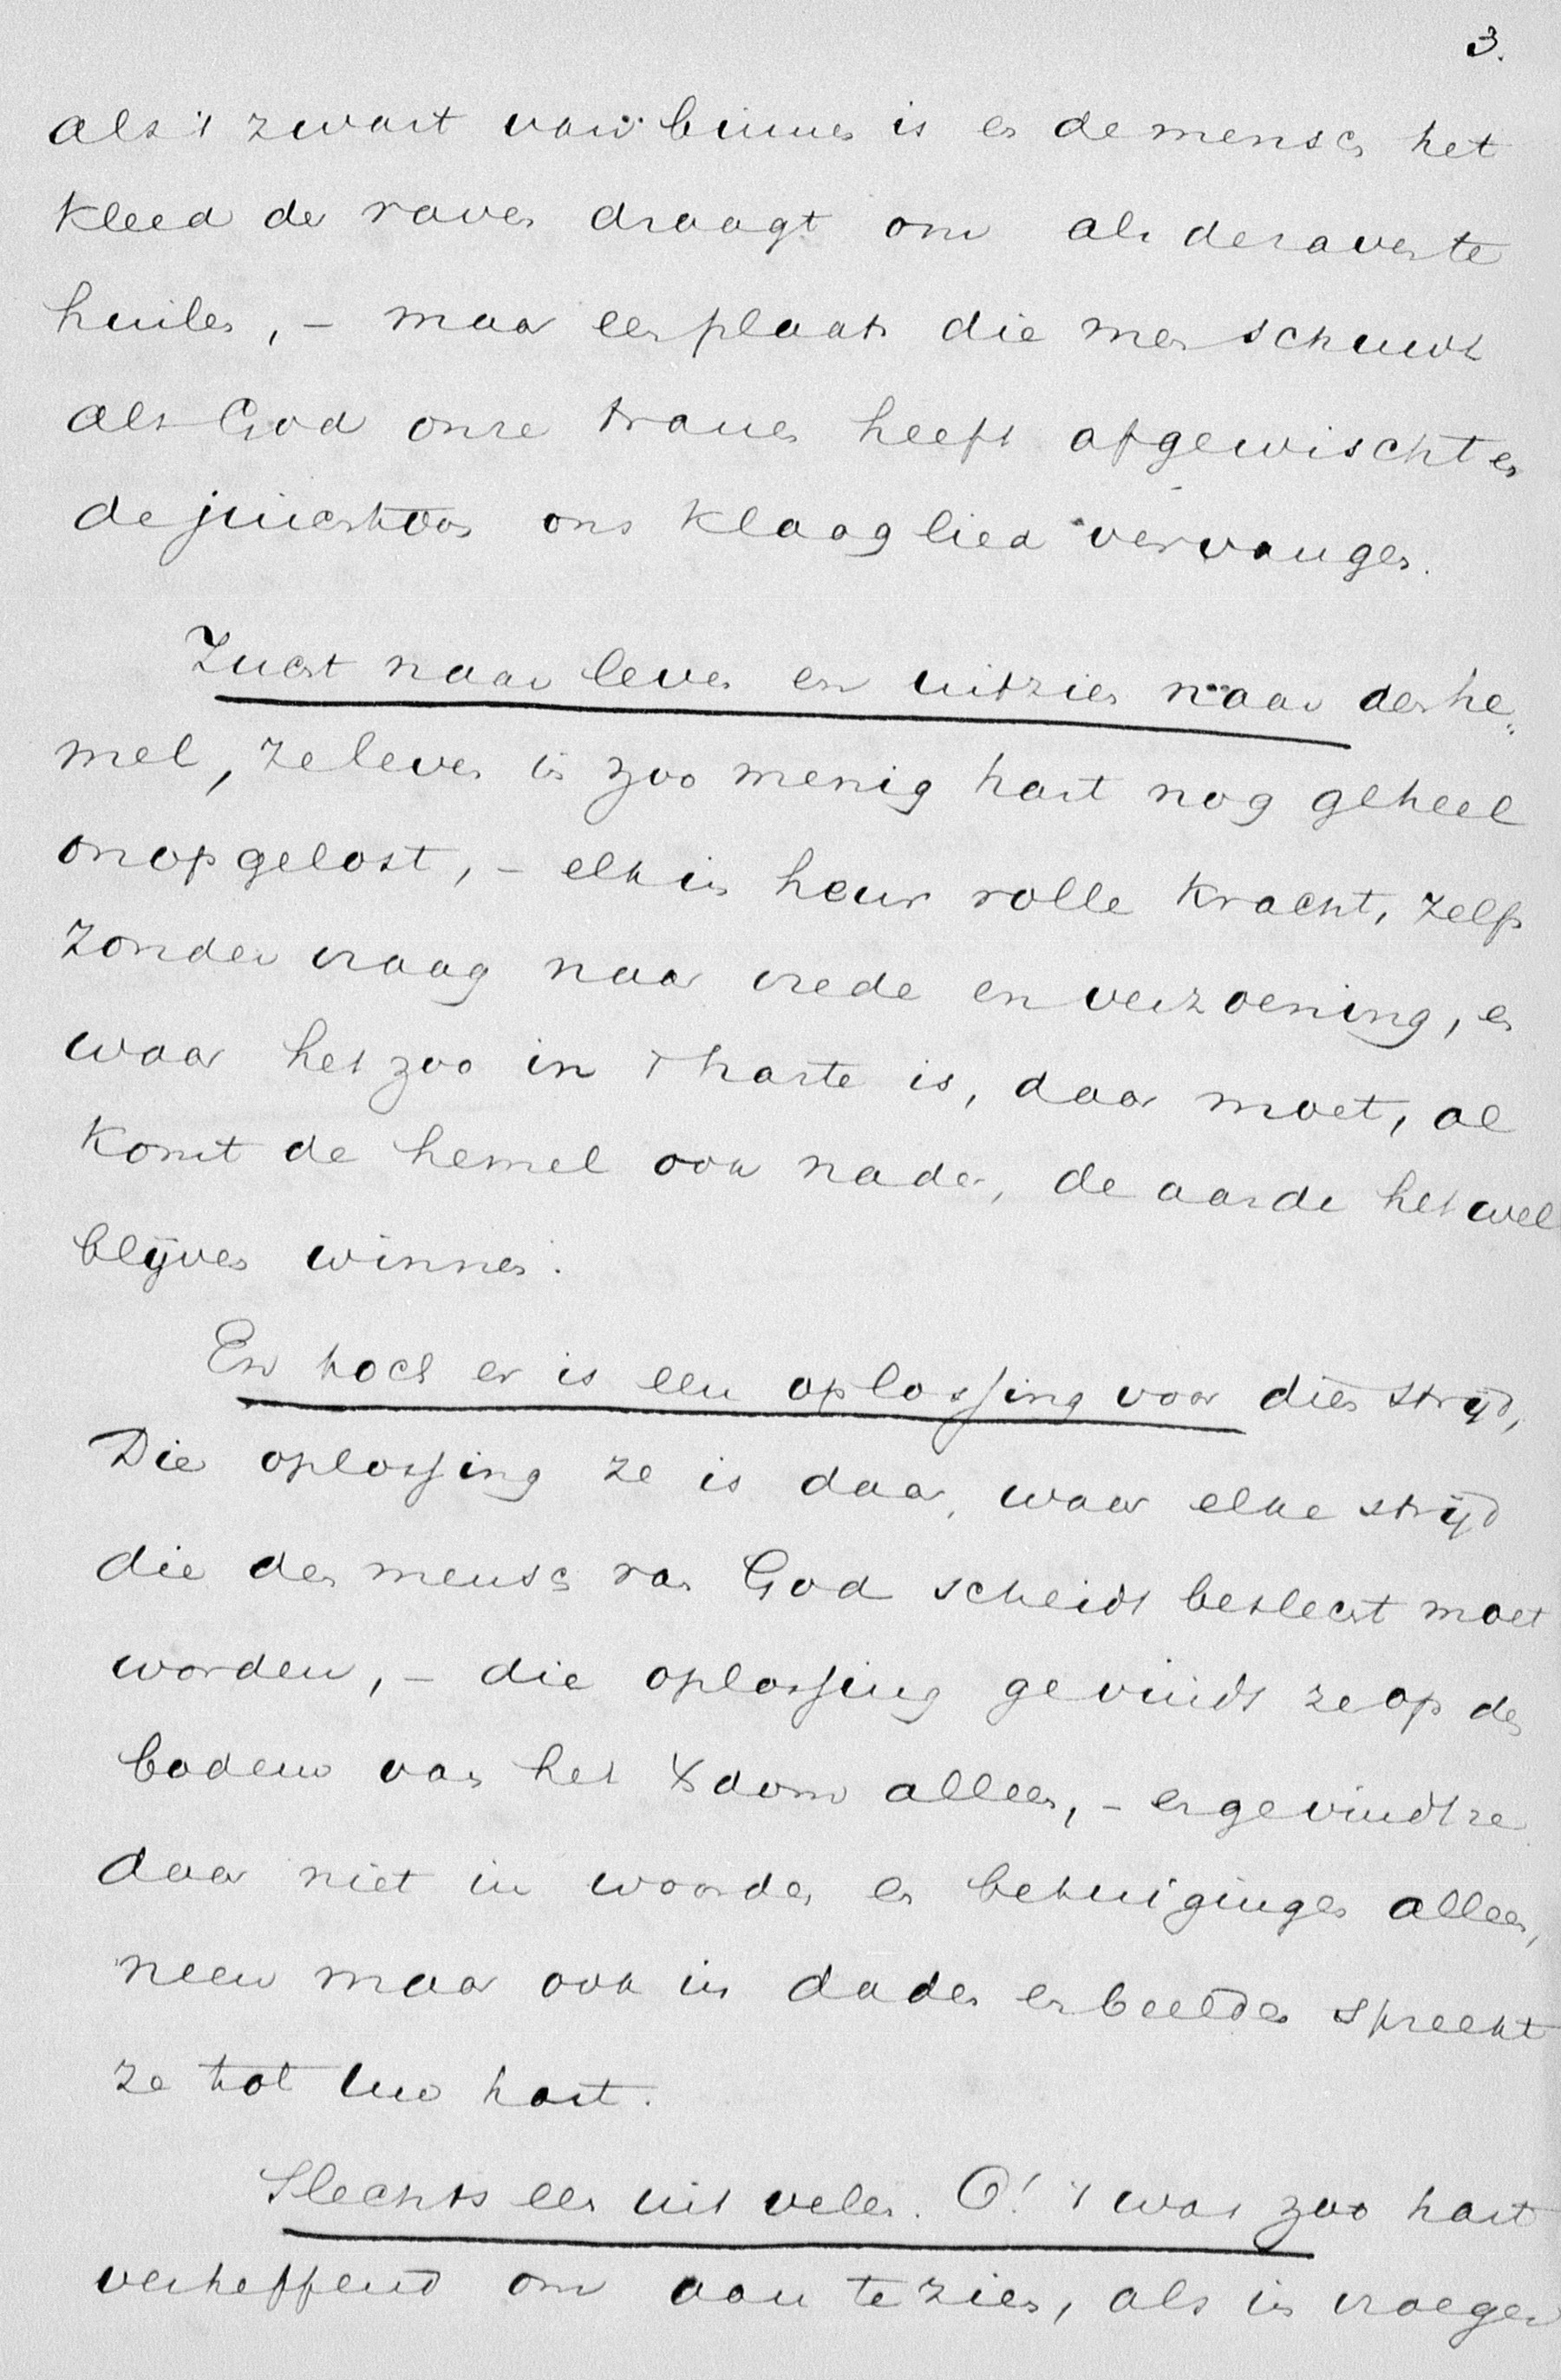 3.
als 't zwart van binnen is en de mensch het
kleed der raven draagt om als de raven te
huilen, – maar een plaats die men schuwt
als God onze tranen heeft afgewischt en
de juichtoon ons klaaglied vervangen.
Zucht naar leven en uitzien naar den he„
mel, ze leven in zoo menig hart nog geheel
onopgelost, – elk in heur volle kracht, zelfs
zonder vraag naar vrede en verzoening, en
waar het zoo in 't harte is, daar moet, al
komt de hemel ook nader, de aarde het wel
blijven winnen.
En toch er is een oplossing voor dien strijd,
Die oplossing ze is daar, waar elke strijd
die den mensch van God scheidt beslecht moet
worden, – die oplossing ge vindt ze op den
bodem van het Xdom alleen, – en ge vindt ze
daar niet in woorden en betuigingen alleen,
neen maar ook in daden en beelden spreekt
ze tot uw hart.
Slechts een uit velen. O! 't was zoo hart
verheffend om aan te zien, als in vroeger